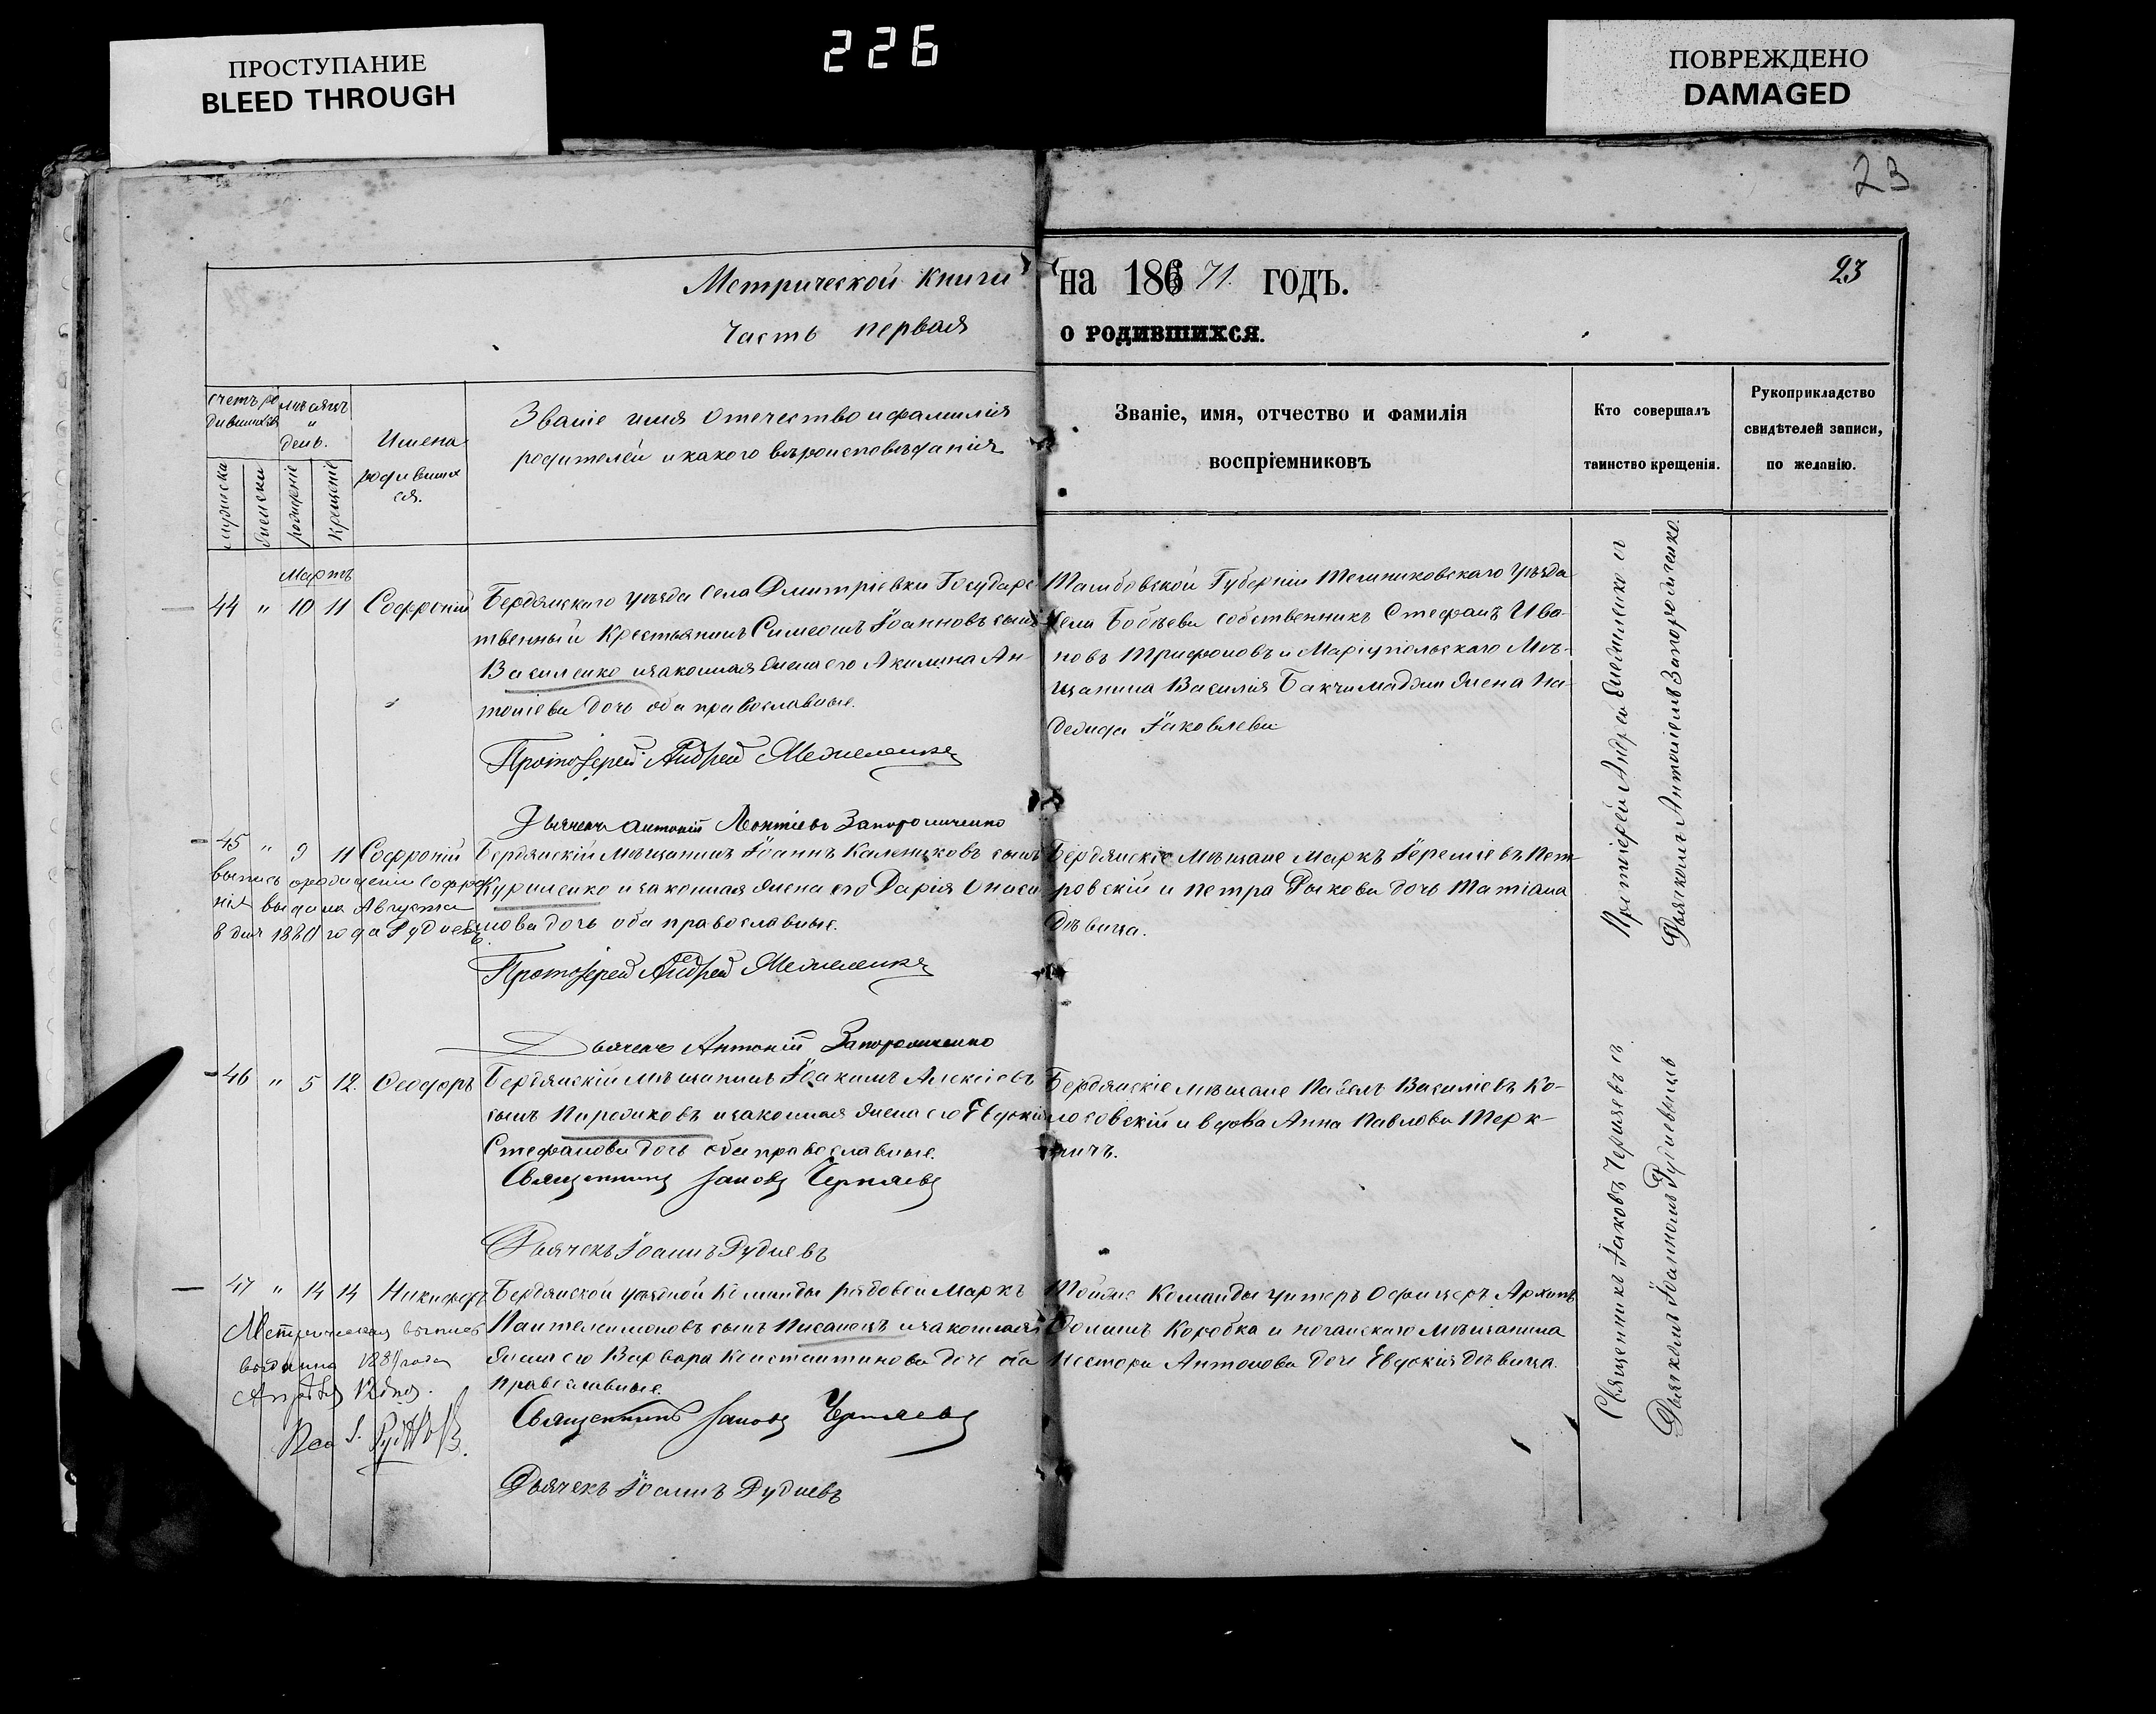 ПРОСТУПАНИЕ
BLEED THROUGH
226
ПОВРЕЖДЕНО
DAMAGED
23
Метрической книги
часть первая
на 186 71. годъ.
о родившихся.
23
счетъ ро
дившихся
мѣсяцъ
и
день.
мужеска
женска
рожденіе
крещеніе
Имена
родивших
ся.
Званіе имя отечество и фамилія
родителей и какого вѣроисповѣданія
Званіе, имя, отчество и фамилія
воспріемниковъ
Кто совершалъ
таинство крещенія.
Рукоприкладство
свидѣтелей записи,
по желанію.
Мартъ
44 " 10 11 Софроній
Бердянскаго уѣзда села Дмитріевки Государс
твенный Крестьянинъ Симеонъ Іоанновъ сынъ
Василенко и законная жена его Акилина Ан-
тоніева дочь оба православные.
Протоіерей Андрей
Дьячекъ Антоній Леонтіевъ Запорожченко
Тамбовской Губерніи Темниковскаго уѣзда
села собственникъ Стефанъ Ива-
новъ Трифоновъ и Маріупольскаго Мѣ-
щанина Василія жена На-
дежда Іаковлева
45 " 9 11 Софроній
выпись о рожденіи Софро
нія выдана Августа
8 дня года Рудневъ
Бердянскій Мѣщанинъ Іоаннъ Калениковъ сынъ
Куриленко и законная жена его Дарія
нова дочь оба православные.
Протоіерей Андрей
Дьячекъ Антоній Запорожченко
Бердянскіе Мѣщане Маркъ Іереміевъ Пет-
ровскій и Петра Рыкова дочь Татіана
Дѣвица.
Протоіерей Андрей съ
Дьячкомъ Антоніемъ Запорожченко.
46 " 5 12. Феодоръ
Бердянскій мѣщанинъ Іоакимъ Алексіевъ
сынъ и законная жена его Евдокія
Стефанова дочь оба православные.
Священникъ Іаковъ Черняевъ
Дьячекъ Іоаннъ Рудневъ
Бердянскіе мѣщане Павелъ Василіевъ Ко-
лосовскій и вдова Анна Павлова
47 " 14 14 Никифоръ
Метрическая выпись
выданна 1881 года
Рудневъ.
Бердянской уѣздной Команды рядовой Маркъ
Пантелеимоновъ сынъ Писанецъ и законная
жена его Варвара Константинова дочь оба
православные.
Священникъ Іаковъ Черняевъ
Дьячекъ Іоаннъ Рудневъ
Тойже Команды унтеръ Офицеръ Архипъ
Фоминъ Коробка и ногайскаго мѣщанина
Нестора Антонова дочь Евдокія дѣвица.
Священникъ Іаковъ Черняевъ съ
Дьячкомъ Іоанномъ Рудневымъ